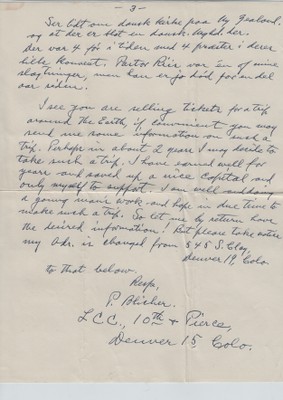 - 3 -
Ser lidt om dansk kirke paa Ny Zealand,
og at der er blot en dansk Mgd. der.
Der var 4 for i tiden med 4 præster i deres
lille Konvent. Pastor Riis var en af mine
slægtninger, men han er jo död for en del
aar siden.
I see you are selling tickets for a trip
around the Earth, if convenient you may
send me some information on such a
trip. Perhaps in about 2 years I may decide to
take such a trip. I have earned well for
years and saved up a nice Capital and
only myself to support. I am well and doing
a young man's work and hope in due time to
make such a trip. So let me by return have
the desired information! But please take notice
my Adr. is changed from 545 S. Clay,
Denver 19, Colo.
to that below.
Resp,
P. Blicher.
L.C.C., 10th & Pierce,
Denver 15, Colo.